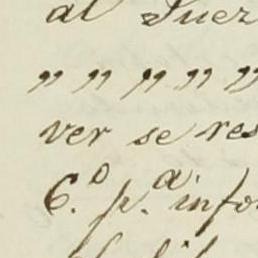 al Juez
„ „ „ „ „
ver se res
6.º p.ª info